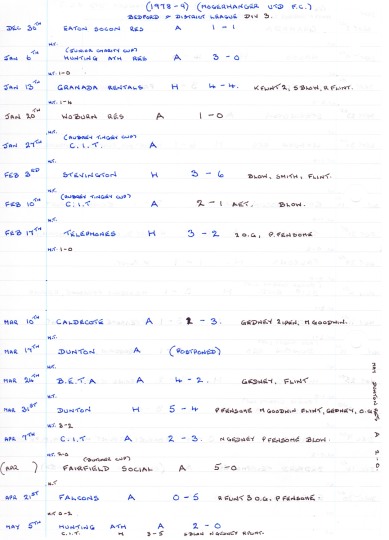 (1978-9) (MOGERHANGER UTD F.C.)
BEDFORD & DISTRICT LEAGUE DIV 3.
DEC 30TH EATON SOCON RES A 1 - 1
H.T. (JUNIOR CHARITY CUP)
JAN 6TH HUNTING ATH RES A 3 - 0
H.T. 1-0
JAN 13TH GRANADA RENTALS H 4 - 4. K FLINT 2, S BLOW, R FLINT.
H.T. 1-4
JAN 20TH WOBURN RES A 1 - 0
H.T.
(AUBREY TINGEY CUP)
JAN 27TH C.I.T. A
H.T.
FEB 3RD STEVINGTON H 3 - 6 BLOW, SMITH, FLINT.
H.T. (AUBREY TINGEY CUP)
FEB 10TH C.I.T A 2 - 1 AET. BLOW.
H.T.
FEB 17TH TELEPHONES H 3 - 2 2 O.G, P. FENSOME
H.T. 1-0
MAR 10TH CALDECOTE A 2 - 3. GEDNEY 2 1PEN, M GOODWIN.
H.T.
MAR 17TH DUNTON A (POSTPONED)
H.T.
MAR 24TH B.E.T.A A 4 - 2. GEDNEY, FLINT
H.T.
MAR 31ST DUNTON H 5 - 4 P FENSOME M GOODWIN FLINT, GEDNEY, O.G
H.T. 3-2
APR 7TH C.I.T A 2 - 3. N GEDNEY P FENSOME BLOW.
H.T. 2-0 CUP)
(APR ) FAIRFIELD SOCIAL A 5 - 0
H.T.
APR 21ST FALCONS A 0 - 5 R FLINT 3 O.G, P FENSOME.
H.T. 0-2
MAY 5TH HUNTING ATH A 2 - 0
C.I.T. H 3 - 5 S BLOW N GEDNEY K FLINT.
MAY DUNTON A 2 - 0.